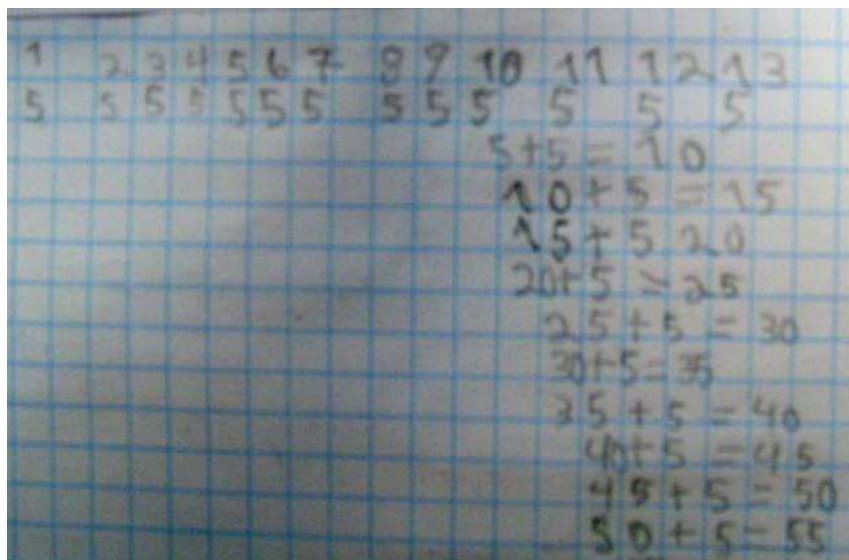 1 2 3 4 5 6 7 8 9 10 11 12 13
5 5 5 5 5 5 5 5 5 5 5 5 5
5+5 = 10
10 + 5 = 15
15 + 5 20
20+5 = 25
25 + 5 = 30
30+5=35
35 + 5 = 40
40+5 = 45
45 + 5 = 50
50 + 5 = 55